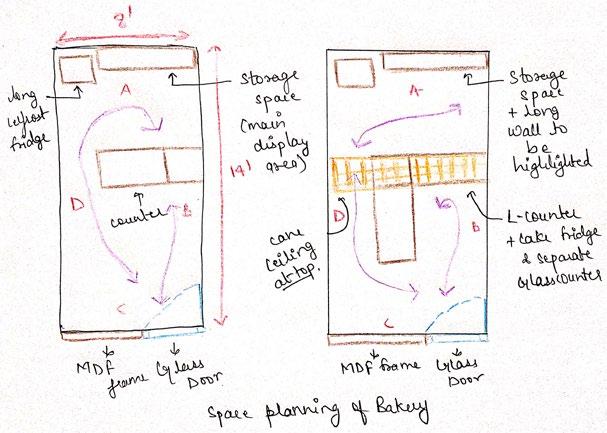 8'
long
fridge
A
Storage
space
(main
display
area)
14'
D
counter
B
C
MDF
frame
Glass
Door
A
Storage
space
+ long
wall to
be
highlighted
D
cane
ceiling
at top.
B
L-counter
+ cake fridge
& separate
glass counter
C
MDF frame
Glass
Door
Space planning of Bakery